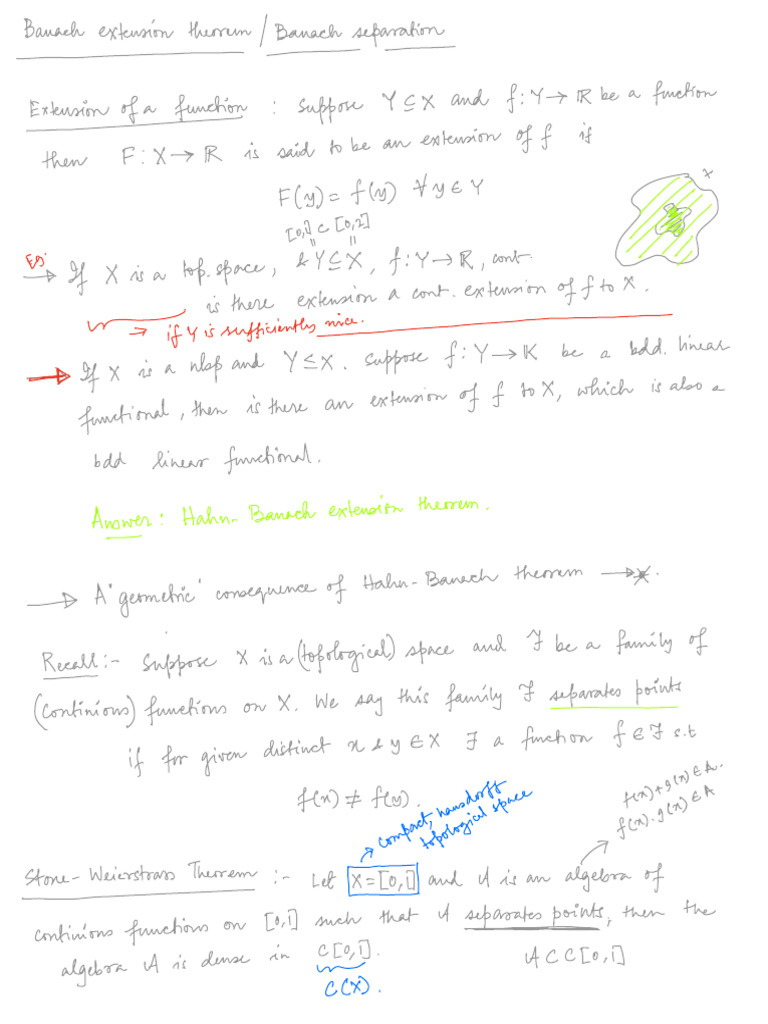 Banach extension theorem / Banach separation
Extension of a function : Suppose Y ⊆ X and f: Y → ℝ be a function
then F: X → ℝ is said to be an extension of f if
F(y) = f(y) ∀ y ∈ Y
X
[0,1] ⊂ [0,2]
Eg:
→ If X is a top. space, & Y ⊆ X, f: Y → ℝ, cont.
is there extension a cont. extension of f to X.
→ if Y is sufficiently nice.
→ If X is a nlsp and Y ≤ X. Suppose f: Y → K be a bdd. linear
functional, then is there an extension of f to X, which is also a
bdd linear functional.
Answer: Hahn-Banach extension theorem.
→ A "geometric" consequence of Hahn-Banach theorem →*.
Recall :- Suppose X is a (topological) space and F be a family of
(continious) functions on X. We say this family F separates points
if for given distinct x & y ∈ X ∃ a function f ∈ F s.t
f(x) ≠ f(y).
→ compact, hausdorff
topological space
f(x)+g(x) ∈ A.
f(x).g(x) ∈ A
Stone-Weierstrass Theorem :- Let X = [0,1] and A is an algebra of
continious functions on [0,1] such that A separates points, then the
algebra A is dense in C[0,1].
A ⊂ C[0,1]
C(X).